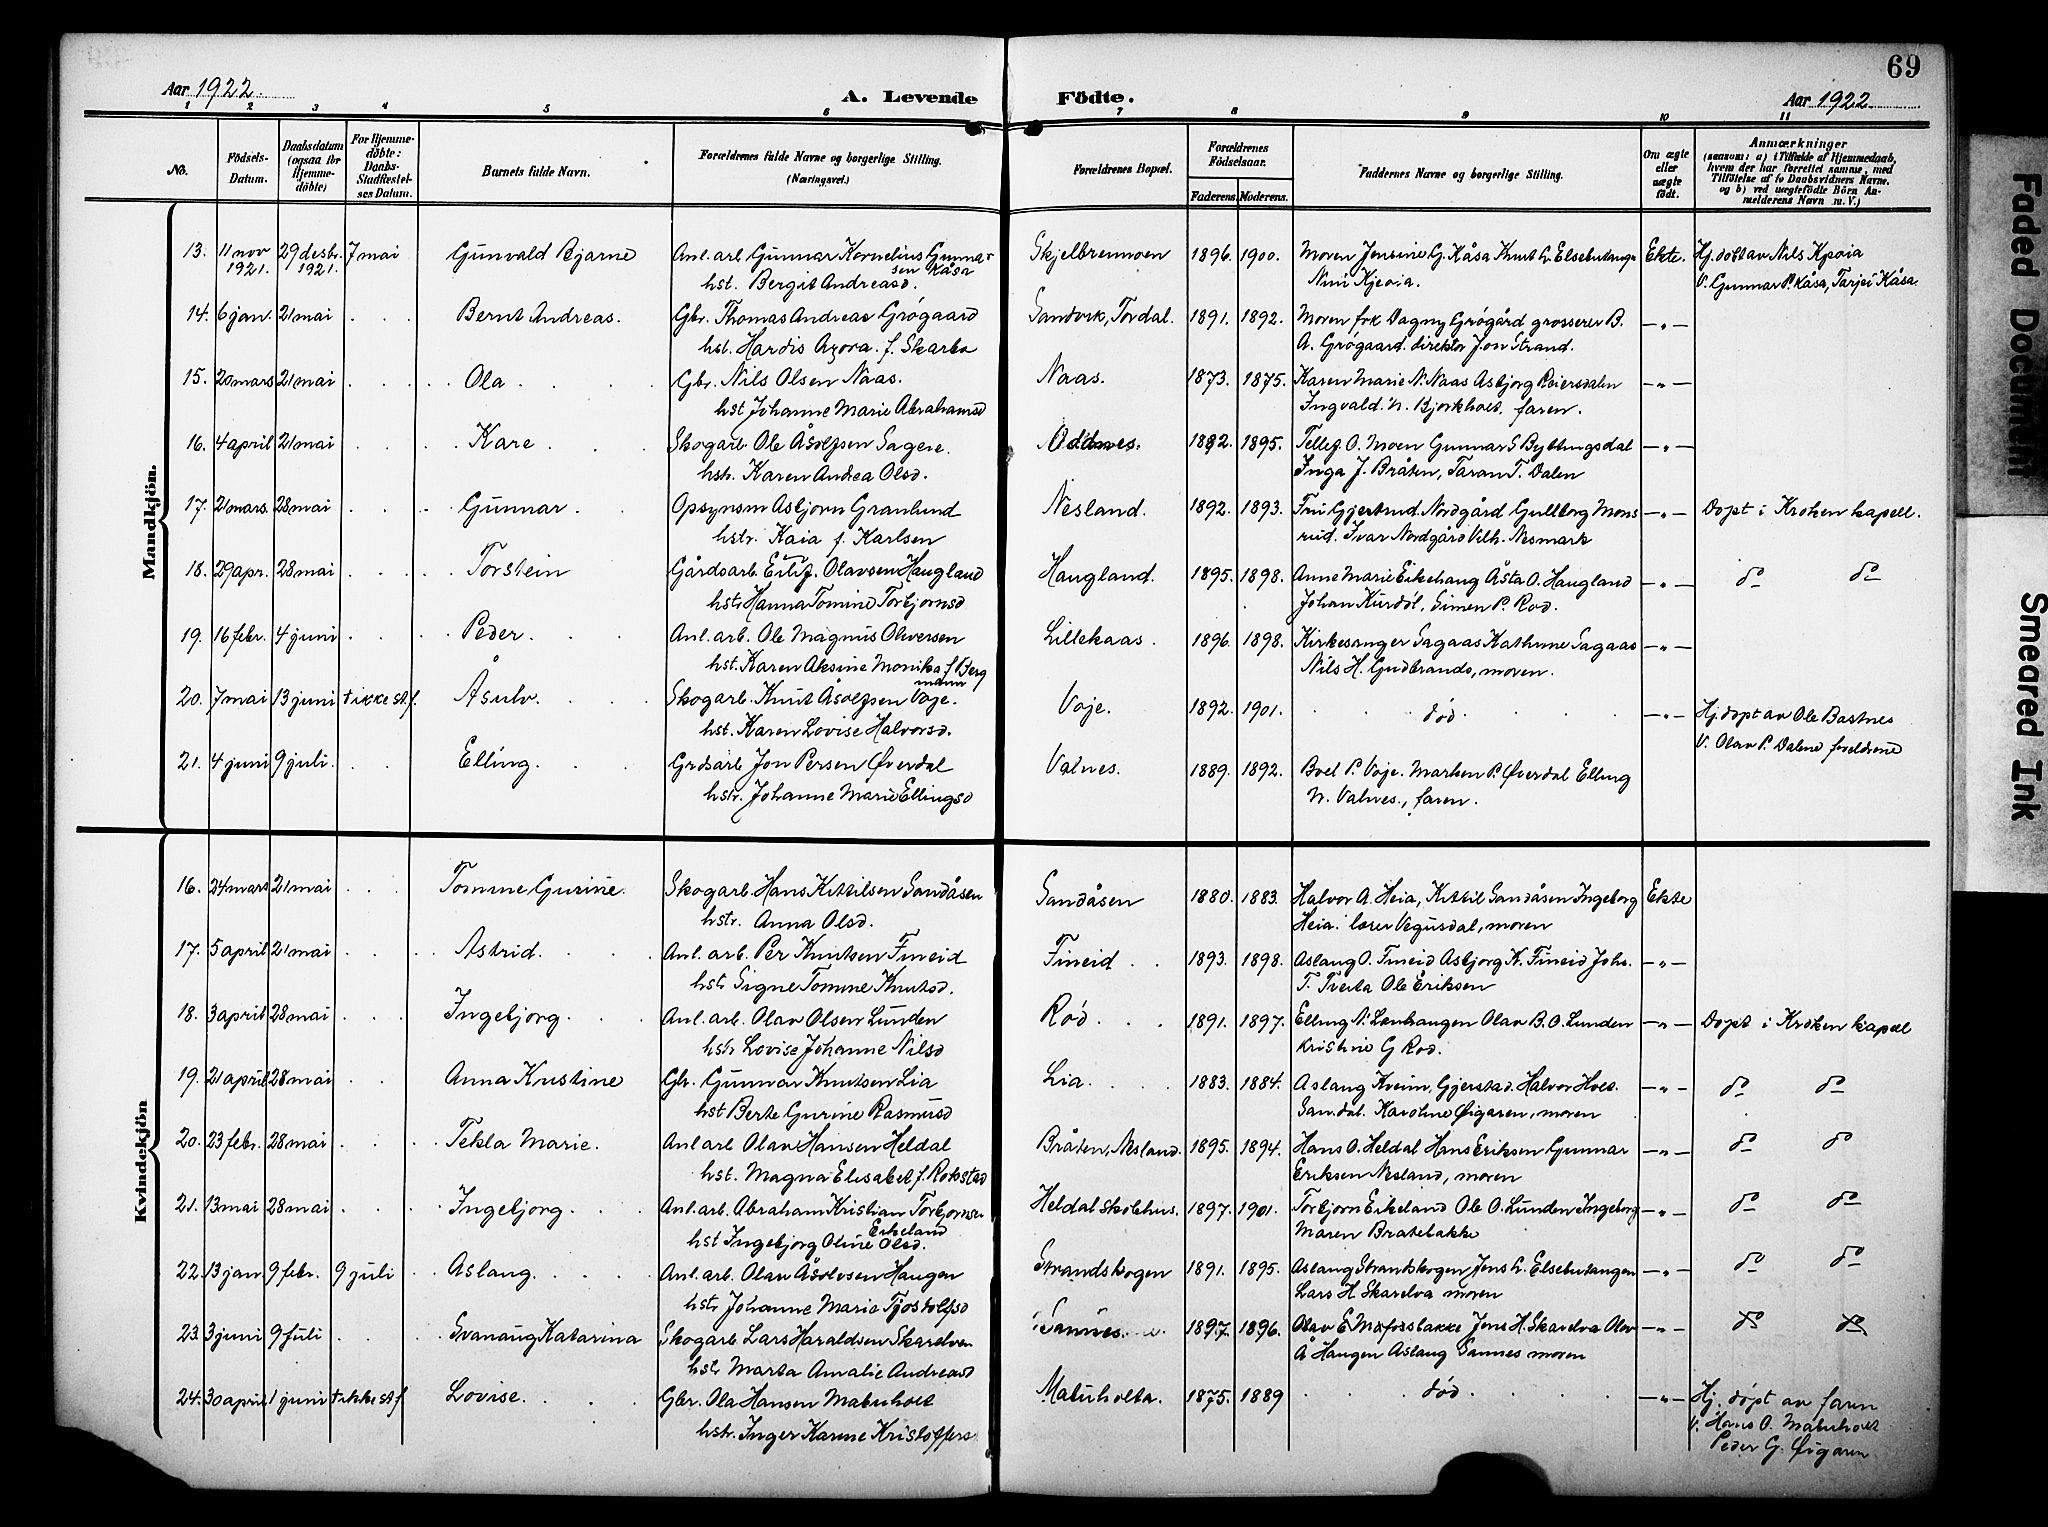 69
Aar 1922.
A. Levende Födte.
Aar 1922
1 2 3 4 5 6 7 8 9 10 11
No.
Födsels-Datum.
Daabsdatum (ogsaa for Hjemmedöbte)
For Hjemmedöbte: Daabs-Stadfæstelses Datum.
Barnets fulde Navn.
Forældrenes fulde Navne og borgerlige Stilling.
(Næringsvei.)
Forældrenes Bopæl.
Forældrenes Födselsaar.
Faderens. Moderens.
Faddernes Navne og borgerlige Stilling.
Om ægte eller uægte födt.
Anmærkninger
(saasom: a) i Tilfælde af Hjemmedaab, hvem der har forrettet samme, med Tilföielse af to Daabsvidners Navne, og b) ved uægtefödte Börn Anmelderens Navn m. V.)
Mandkjön.
13. 11 nov 1921. 29 desbr. 1921. 7 mai Gunvald Bjarne Anl. arb. Gunnar Kornelius Gunnarsen Kåsa Skjelbremoen 1896. 1900. Moren Jensine G. Kåsa Knut L. Elsebutangen Ekte. Hj. döbt av Nils
hst. Bergit Andreasd. Nini V. Gunnar P. Kåsa, Tarjei Kåsa
14. 6 jan. 21 mai Bernt Andreas. Gbr. Thomas Andreas Grögaard Sandvik, Tordal. 1891. 1892. Moren frk Dagny Grögård grosserer B. — " —
hst. Hardis f. Skarbo A. Grögaard. direktör Jon Strand.
15. 20 mars 21 mai Ola Gbr. Nils Olsen Naas. Naas. 1873. 1875. Karen Marie N. Naas Asbjörg Reiersdalen — " —
hst Johanne Marie Abrahamsd Ingvald N. Bjorkholt. faren.
16. 4 april 21 mai Kare Skogarb Ole Åsolfsen Sagene. 1895. Tellef O. Moen Gunnar S Byttingsdal — " —
hstr. Karen Andrea Olsd. Inga J. Bråten, Taran T. Dalen
17. 21 mars. 28 mai Gunnar Opsynsm Asbjorn Granlund Nesland. 1892. 1893. Fru Gjertrud Nordgård Gullborg Monsrud. — " — Döpt i Kroken kapell.
hstr. Kaia f. Karlsen Ivar Nordgård Vilh. Nesmark
18. 29 apr. 28 mai Torstein Gårdsarb. Eilif. Olavsen Haugland Haugland. 1895. 1898. Anne Marie Eikehaug Åsta O. Haugland — " — do do
hstr Hanna Tomine Torbjornsd Johan Kurdöl, Simen P. Rod.
19. 16 febr. 4 juni Peder. Anl. arb. Ole Magnus Oliversen Lillekaas. 1896. 1898. Kirkesanger Sagaas Kathrine Sagaas — " —
hst. Karen Aksine Monika f Bergmann Nils H. Gudbrands, moren.
20. 7 mai 13 juni † ikke st. f. Åsulv. Skogarb. Knut Åsolfsen Voje. Voje. 1892. 1901. död. — " — Hj. döpt av Ole Bastnes
hst. Karen Lovise Halvorsd. V. Olav P. Dalene foreldrene
21. 4 juni 9 juli. Elling. Grdsarb Jon Persen Överdal Valnes. 1889. 1892. Boel P. Voje. Marken P. Överdal Elling
hstr. Johanne Marie Ellingsd N. Valnes., faren.
Kvindekjön
16. 24 mars 21 mai Tomine Gurine. Skogarb. Hans Kittilsen Sandåsen Sandåsen 1880. 1883. Halvor A. Heia, Kittil Sandåsen Ingeborg Ekte
hstr. Anna Olsd. Heia. lærer Vegusdal, moren
17. 5 april 21 mai Astrid. Anl. arb. Per Knutsen Fineid Fineid 1893. 1898. Aslaug O. Fineid Asbjörg K. Fineid Johs. — " —
hstr Signe Tomine Knutsd. T. Tveita Ole Eriksen
18. 3 april 28 mai Ingebjorg. Anl. arb. Olav Olsen Lunden Röd. 1891. 1897. Elling N. Lonhaugen Olav B. O. Lunden — " — Döpt i Kroken kapell
hstr Lovise Johanne Nilsd Kristine G Rod.
19. 21 april 28 mai Anna Kristine Gbr. Gunnar Knutsen Lia Lia. 1883. 1884. Aslaug Kveim, Gjerstad. Halvor — " — do do
hst Berte Gurine Rasmusd Sandal. Karoline Öigaren, moren
20. 23 febr. 28 mai Tekla Marie. Anl arb Olav Hansen Heldal Bråten, Nesland. 1895. 1894. Hans O. Heldal Hans Eriksen Gunnar — " — do do
hst. Magna Elisabet f. Rokstad Eriksen Nesland, moren
21. 13 mai 28 mai Ingebjorg Anl. arb. Abraham Kristian Torbjornsen Eikeland Heldal skolehus. 1897. 1901. Torbjorn Eikeland Ole O. Lunden Ingeborg — " — do do
hst Ingebjorg Oline Olsd. Maren Bratebakke
22. 13 jan. 9 febr. 9 juli Aslaug. Anl. arb. Olav Åsolvsen Haugen Strandskogen 1891. 1895. Aslaug Strandskogen Jens L. Elsebutangen — " — do do
hstr Johanne Marie Tjostolfsd Lars H Skarelva moren
23. 3 juni 9 juli Svanaug Katarina Skogarb Lars Haraldsen Skarelven Sannes 1897. 1896. Olav E Mofossbakke Jens H. Skarelva Olav — " — do do
hstr Marta Amalie Andreasd Å Haugen Aslaug Sannes moren
24. 30 april 1 juni † ikke st f. Lovise. Gbr. Ola Hansen Matuholt Matuholta. 1875. 1889 död. — " — Hj. döpt av faren
hstr. Inger Karine Kristoffers. V. Hans O. Matuholt
Peder G. Öigaren
Faded Document
Smeared Ink